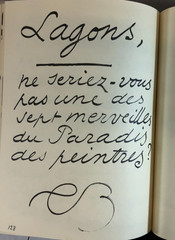 Lagons,
ne seriez-vous
pas une des
sept merveilles
du Paradis
des peintres?
128